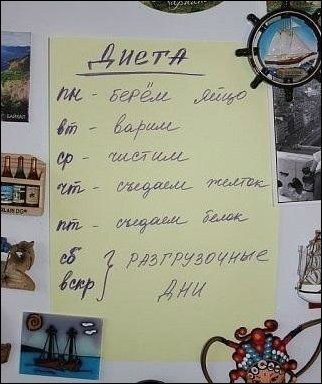 ДИЕТА
пн - берём яйцо
вт - варим
ср - чистим
чт - съедаем желток
пт - съедаем белок
сб } РАЗГРУЗОЧНЫЕ
вскр ДНИ